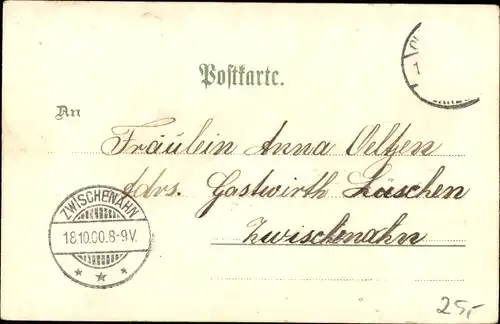 Postkarte.
An
Fräulein Anna Oeltjen
Adrs. Gastwirth Lüschen
Zwischenahn
ZWISCHENAHN
18.10.00.8-9V.
25,-